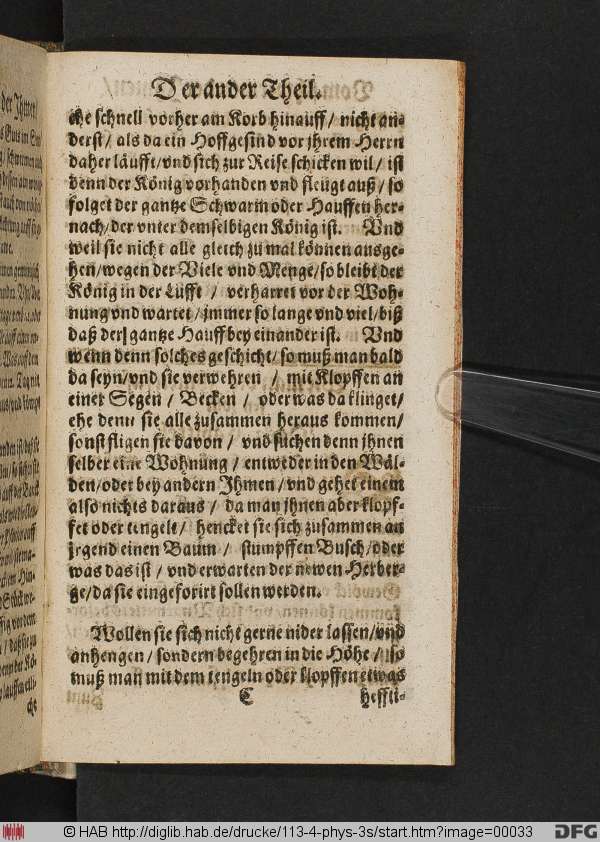 der Ihmen/
Der ander Theil.
che schnell vorher am Korb hinauff / nicht an-
derst / als da ein Hoffgesind vor jhrem Herrn
daher läufft/vnd sich zur Reise schicken wil / ist
denn der König vorhanden vnd fleugt auß / so
folget der gantze Schwarm oder Hauffen her-
nach/der vnter demselbigen König ist. Vnd
weil sie nicht alle gleich zu mal können ausge-
hen/wegen der Viele vnd Menge/so bleibt der
König in der Lüfft / verharret vor der Woh-
nung vnd wartet / jmmer so lange vnd viel/biß
daß der gantze Hauff bey einander ist. Vnd
wenn denn solches geschicht/so muß man bald
da seyn/vnd sie verwehren / mit Klopffen an
einer Segen / Becken / oder was da klinget/
ehe denn sie alle zusammen heraus kommen/
sonst fligen sie davon / vnd suchen denn jhnen
selber eine Wohnung / entweder in den Wäl-
den/oder bey andern Ihmen/vnd gehet einem
also nichts daraus / da man jhnen aber klopf-
fet oder tengelt/ hencket sie sich zusammen an
jrgend einen Baum / stumpffen Busch/oder
was das ist / vnd erwarten der newen Herber-
ge/da sie eingeforirt sollen werden.
Wollen sie sich nicht gerne nider lassen/vnd
anhengen / sondern begehren in die Höhe / so
muß man mit dem tengeln oder klopffen etwas
C heffti-
© HAB http://diglib.hab.de/drucke/113-4-phys-3s/start.htm?image=00033
DFG